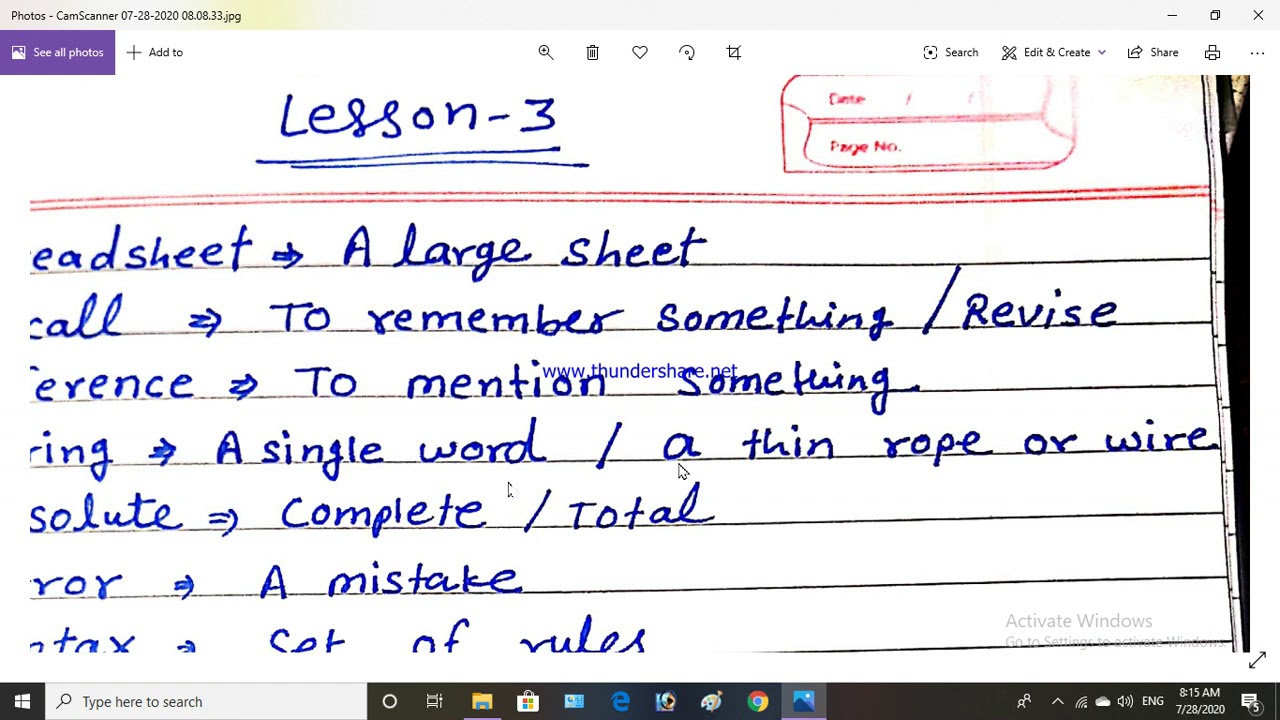 Photos - CamScanner 07-28-2020 08.08.33.jpg
See all photos
Add to
Search
Edit & Create
Share
Lesson-3
Date / /
Page No.
eadsheet ⇒ A large sheet
call ⇒ To remember something / Revise
ference ⇒ To mention something.
www.thundershare.net
ring ⇒ A single word / a thin rope or wire.
solute ⇒ Complete / Total
ror ⇒ A mistake
ntax ⇒ Set of rules
Activate Windows
Go to Settings to activate Windows.
Type here to search
ENG
8:15 AM
7/28/2020
5